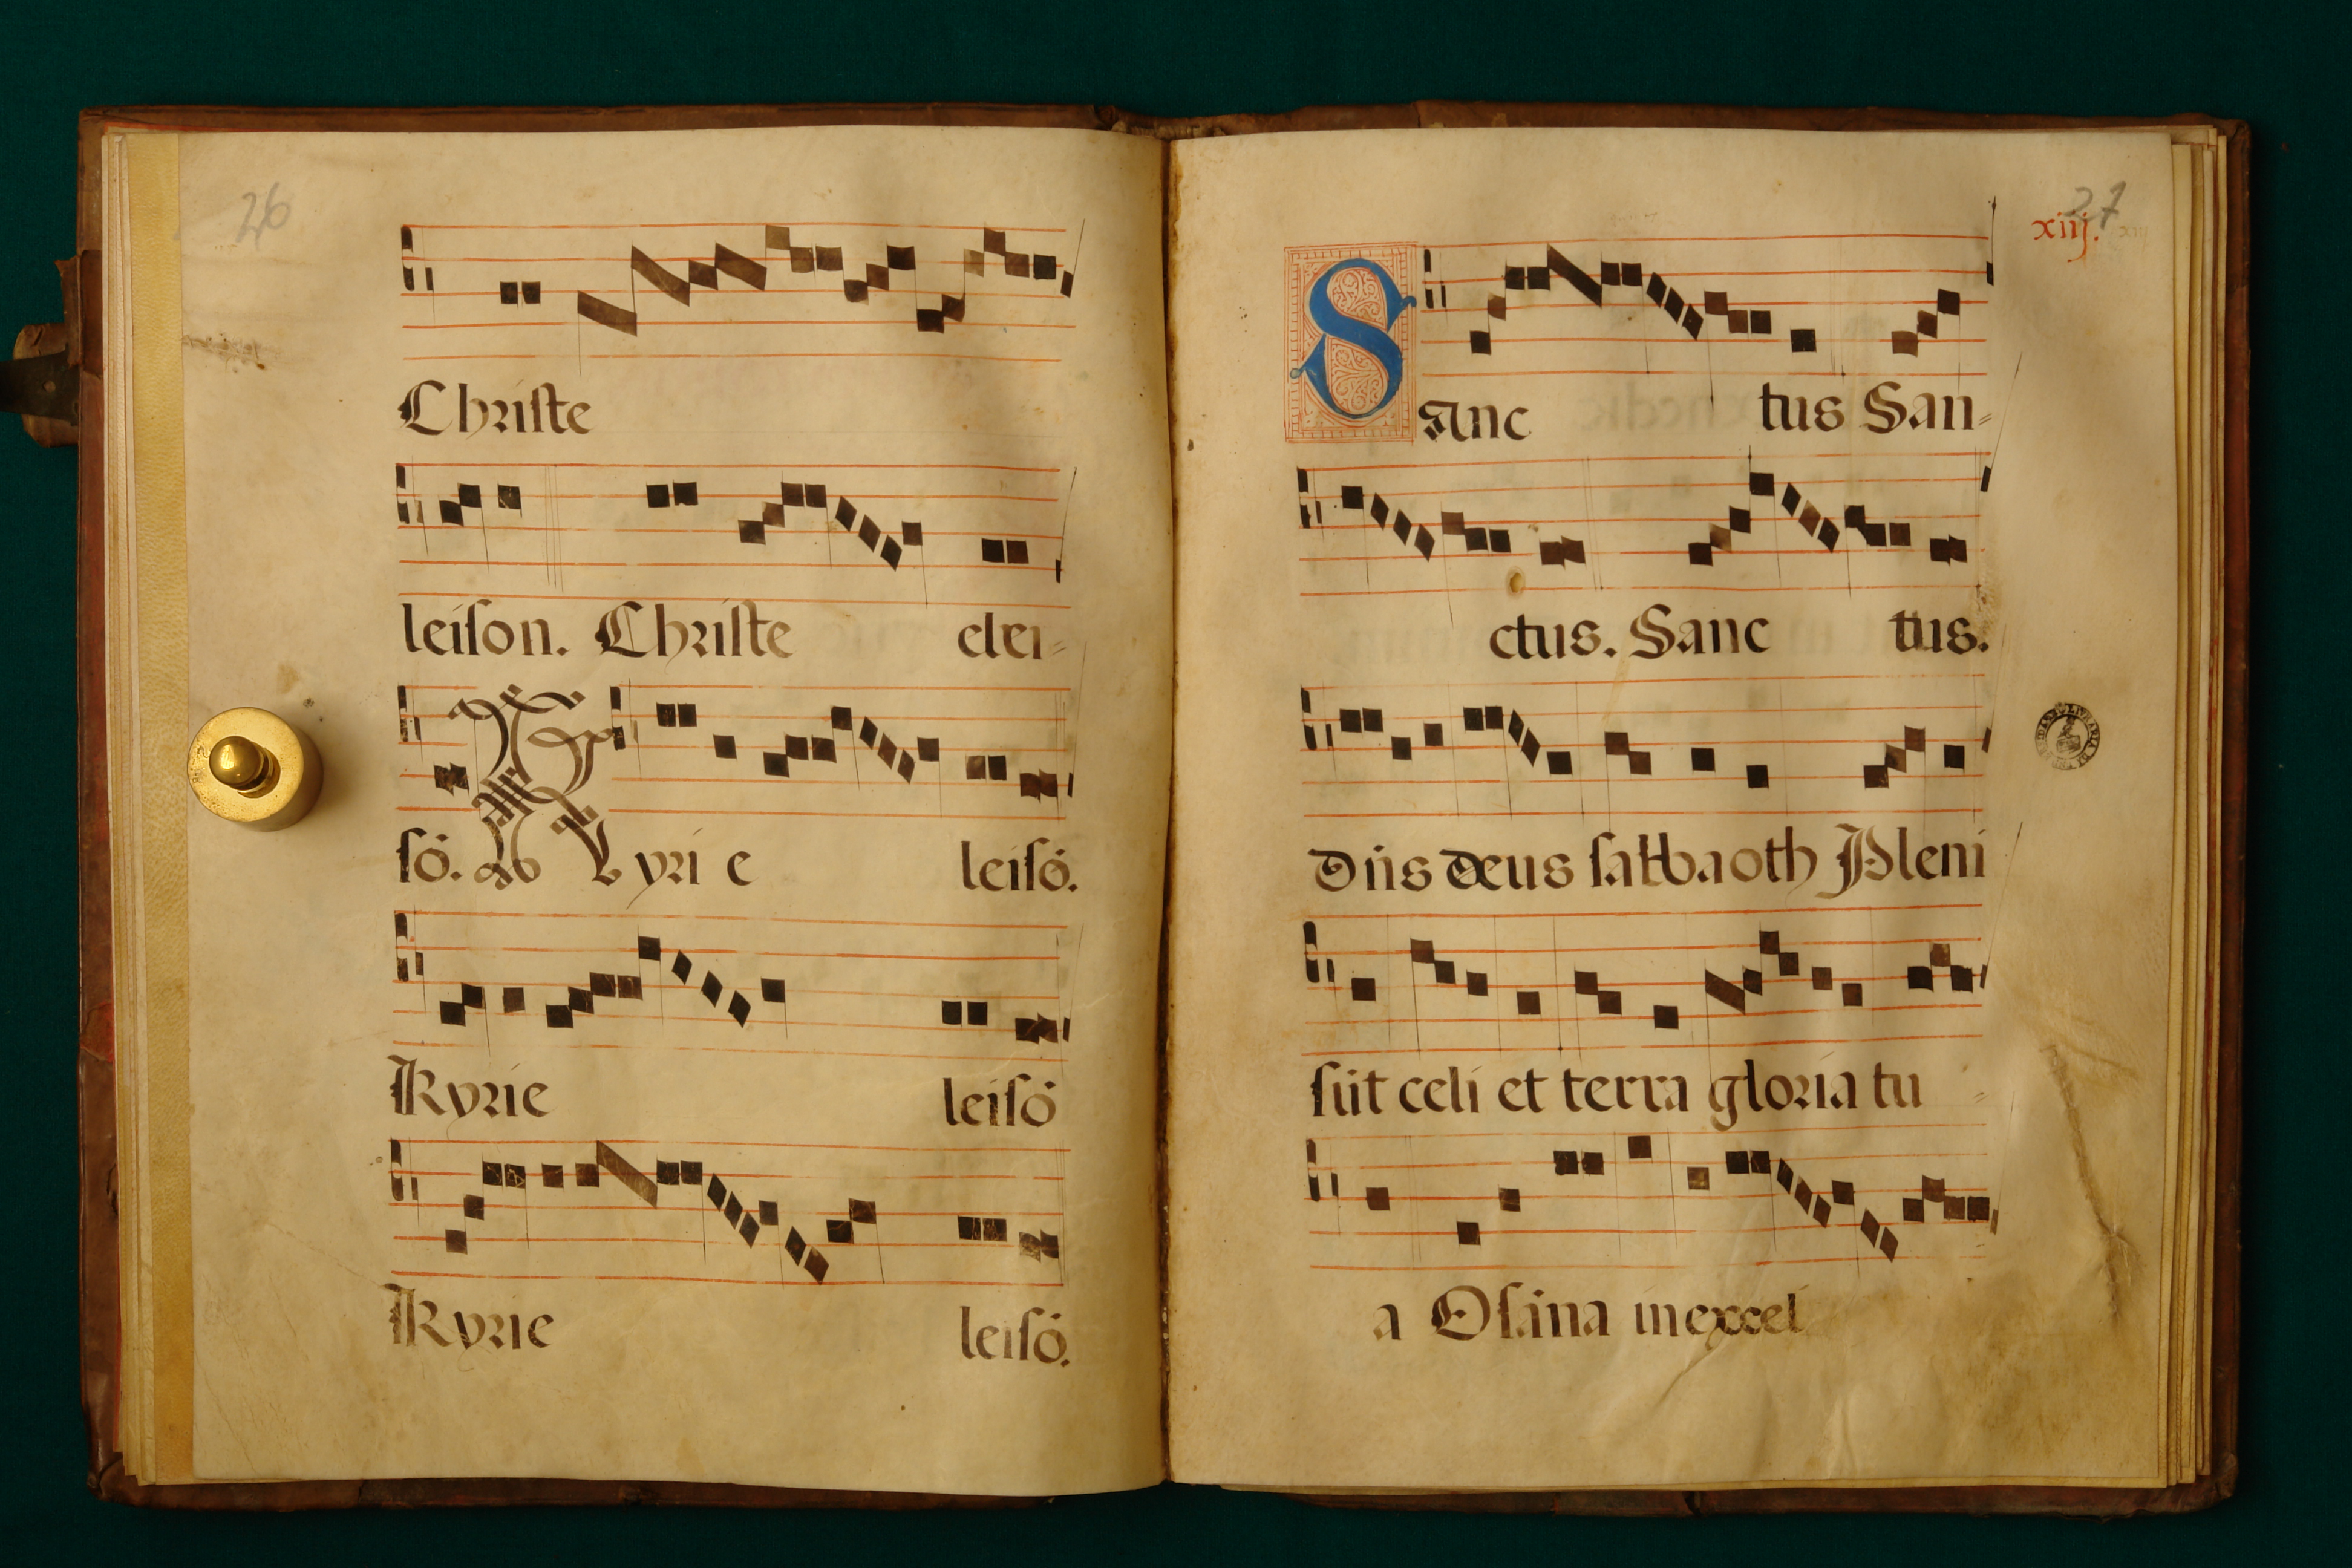 26
Christe
leiſon. Christe elei=
ſō. Kyri e leiſō.
Kyrie leiſō
Kyrie leiſō.
27
xiij.
Sanc tus San=
ctus. Sanc tus.
Dn̄s deus ſabbaoth Pleni
sūt celi et terra gloria tu =
a Oſāna in excel